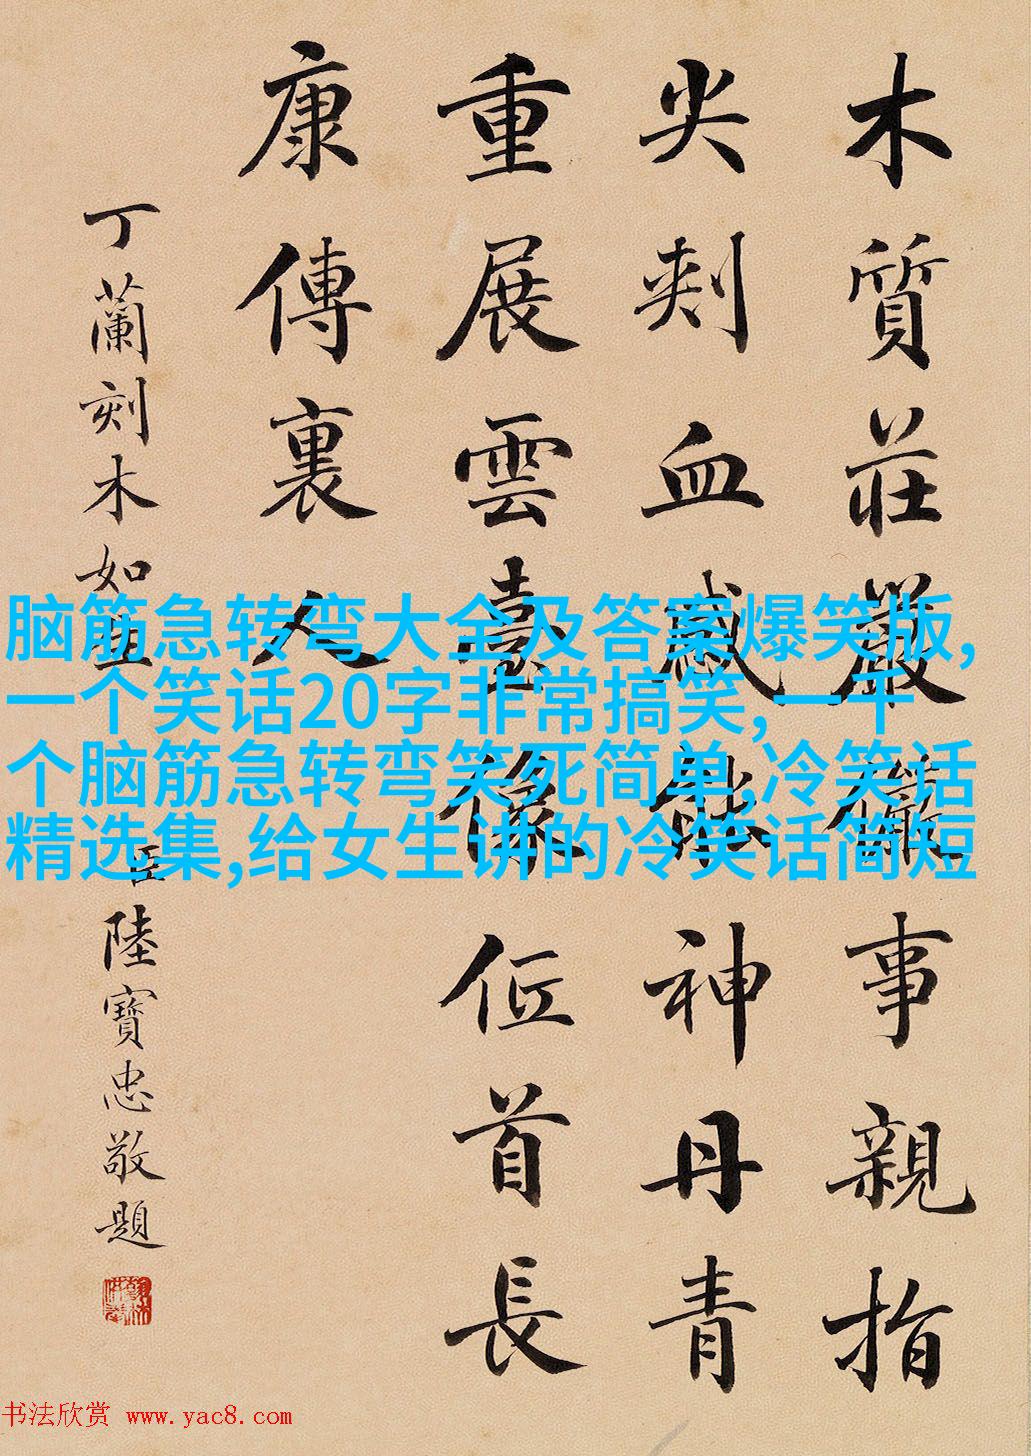 木質莊嚴儼事親指
尖刾血感能神丹青
重展雲臺像低首長
康傳裏人
丁蘭刻木如
臣陸寶忠敬題
脑筋急转弯大全及答案爆笑版,
一个笑话20字非常搞笑,一千
个脑筋急转弯笑死简单,冷笑话
精选集,给女生讲的冷笑话简短
书法欣赏 www.yac8.com